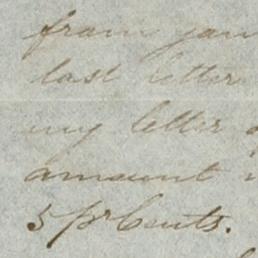 from
last letter
my letter
amount
5 pr Cents.